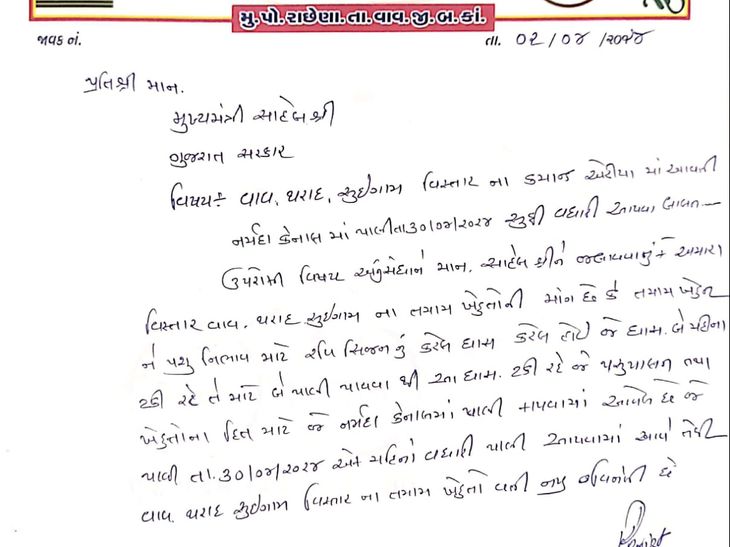 મુ.પો. રાછેણા. તા. વાવ. જી. બ. કાં.
જાવક નં. તા. ૦૨/૦૪/૨૦૨૪
પ્રતિશ્રી માન.
મુખ્યમંત્રી સાહેબ શ્રી
ગુજરાત સરકાર
વિષય:- વાવ, થરાદ, સુઇગામ વિસ્તાર ના કમાન્ડ એરીયા માં આવતી
નર્મદા કેનાલ માં પાણી તા. ૩૦/૦૪/૨૦૨૪ સુધી વધારી આપવા બાબત
ઉપરોક્ત વિષય અનુસંધાને માન. સાહેબ શ્રીને જણાવવાનું કે અમારા
વિસ્તાર વાવ, થરાદ, સુઇગામ ના તમામ ખેડુતોની માંગ છે કે તમામ ખેડુત
ને પશુ નિભાવ માટે રવિ સિજન નું કરેલ ઘાસ કરેલ હોઇ જે ઘાસ. બે મહીના
ટકી રહે તે માટે બે પાણી પાવવા થી આ ઘાસ. ટકી રહે જે પશુપાલન તથા
ખેડુતોના હિત માટે જે નર્મદા કેનાલમાં પાણી આપવામાં આવેલ છે જે
પાણી તા. ૩૦/૦૪/૨૦૨૪ એક મહિનો વધારી પાણી આપવામાં આવે તેવી
વાવ. થરાદ સુઇગામ વિસ્તાર ના તમામ ખેડુતો વતી નમ્ર વિનંતી છે